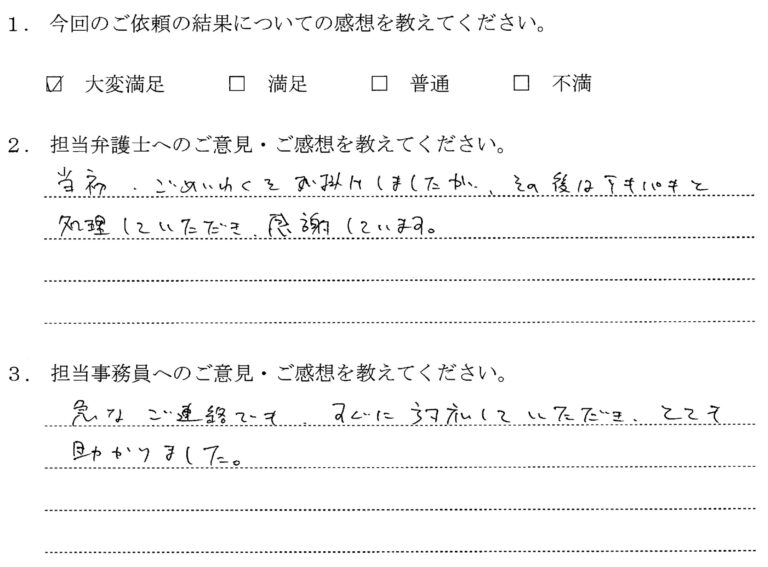 1． 今回のご依頼の結果についての感想を教えてください。
☑ 大変満足 □ 満足 □ 普通 □ 不満
2． 担当弁護士へのご意見・ご感想を教えてください。
当初、ごめいわくをお掛けしましたが、その後はテキパキと
処理していただき、感謝しています。
3． 担当事務員へのご意見・ご感想を教えてください。
急なご連絡でも、すぐに対応していただき、とても
助かりました。